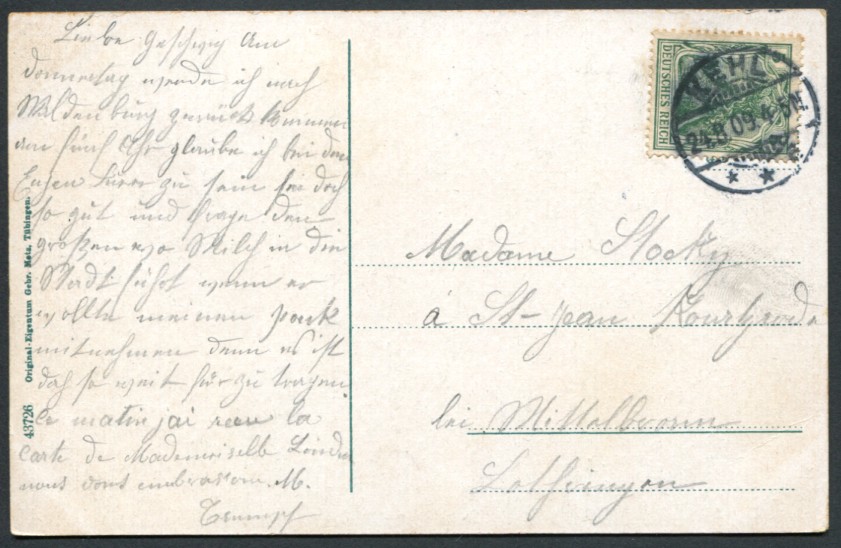 Liebe Geschwig am
Donnerstag werde ich nach
Waldenburg zurück kommen
um fünf Uhr glaube ich bei den
zu sein sei doch
so gut und frage den
großen wo Milch in die
Stadt führt wenn er
wollte meinen pack
mitnehmen denn es ist
doch so weit für zu tragen
Ce matin jai recu la
carte de Mademoiselle
nous vous embrassons. M.
Trumpf
43726 Original-Eigentum Gebr. Metz, Tübingen.
DEUTSCHES REICH
KEHL
24.8.09.4-5N.
* *
Madame Stocky
à St-Jean Kourtzerode
bei Mittelbronn
Lothringen